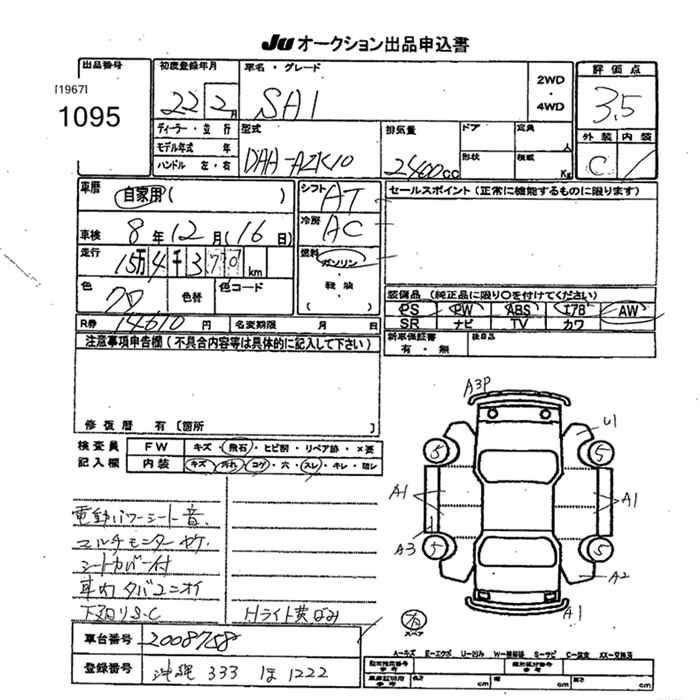 JU オークション出品申込書
出品番号
[1967]
1095
初度登録年月
22 2月
車名・グレード
SAI
2WD
・
4WD
評価点
3.5
外装 内装
C
ディーラー・並行
モデル年式 年
ハンドル 左・右
型式
DAA-AZK10
排気量
2400cc
ドア
形状
定員
人
積載
Kg
車歴
自家用( )
車検 8年12月(16日)
走行
15万4千370km
色
クロ
色替
色コード
R券 14610円 名変期限 月 日
シフト AT
冷房 AC
燃料
ガソリン
・
軽油
( )
セールスポイント(正常に機能するものに限ります)
装備品(純正品に限り○を付けてください)
PS PW ABS エアB AW
SR ナビ TV カワ
新車保証書
有・無
後日品
注意事項申告欄(不具合内容等は具体的に記入して下さい)
修復歴 有〔箇所
検査員
記入欄
FW キズ・飛石・ヒビ割・リペア跡・×要
内装 キズ・汚れ・コゲ・穴・スレ・キレ・
電動パワーシート音
マルチモニターヤケ
シートカバー付
車内タバコニオイ
下回りS・C
Hライト黄ばみ
A3P
U1
5 5
A1 A1
A3
5 5
A2
A1
スペア
車台番号 2008758
登録番号 沖縄 333 ほ 1222
A-キズ E-エクボ U-凹み W-補修跡 S-サビ C-腐食 XX-交換済
cm cm cm